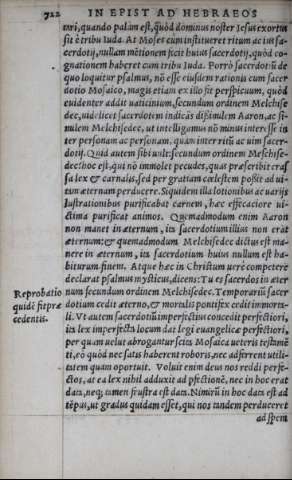 722 IN EPIST AD HEBRAEOS
mri, quando palàm est, quòd dominus noster Iesus exortus
sit è tribu Iuda. At Moses cum institueret ritum ac ius sa-
cerdotij, nullam mẽtionem fecit huius sacerdotij, quòd co-
gnationem haberet cum tribu Iuda. Porrò sacerdotiũ de
quo loquitur psalmus, nõ esse eiusdem rationis cum sacer
dotio Mosaico, magis etiam ex illo fit perspicuum, quòd
euidenter addit uaticinium, secundum ordinem Melchise
dec, uidelicet sacerdotem indicãs dissimilem Aaron, ac si-
milem Melchisedec, ut intelligamus nõ minus interesse in
ter personam ac personam, quàm inter ritũ ac uim sacer-
dotij. Quid autem sibi uult: secundum ordinem Melchise-
dec: hoc est, qui nõ immolet pecudes, quas praescribit cras
sa lex & carnalis, sed per gratiam cælestem possit ad ui-
tam æternam perducere. Siquidem illa lotionibus ac uarijs
lustrationibus purificabat carnem, hæc efficaciore ui-
ctima purificat animos. Quemadmodum enim Aaron
non manet in æternum, ita sacerdotium illius non erat
æternum: & quemadmodum Melchisedec dictus est ma-
nere in æternum, ita sacerdotium huius nullum est ha-
biturum finem. Atque hæc in Christum uerè competere
declarat psalmus mysticus, dicens: Tu es sacerdos in æter
num secundum ordinem Melchisedec. Temporariũ sacer
Reprobatio dotium cedit æterno, & mortalis pontifex cedit immorta-
quidẽ fit præ li. Vt autem sacerdotiũ imperfectius concedit perfectiori,
cedentis. ita lex imperfecta locum dat legi euangelicæ perfectiori,
per quam uelut abrogantur scita Mosaica ueteris testamẽ
ti, eò quòd nec satis haberent roboris, nec adferrent utili-
tatem quam oportuit. Voluit enim deus nos reddi perfe-
ctos, at ea lex nihil adduxit ad pfectionẽ, nec in hoc erat
data, neq; tamen frustra est data. Nimirũ in hoc data est ad
tẽpus, ut gradus quidam esset, qui nos tandem perduceret
ad spem